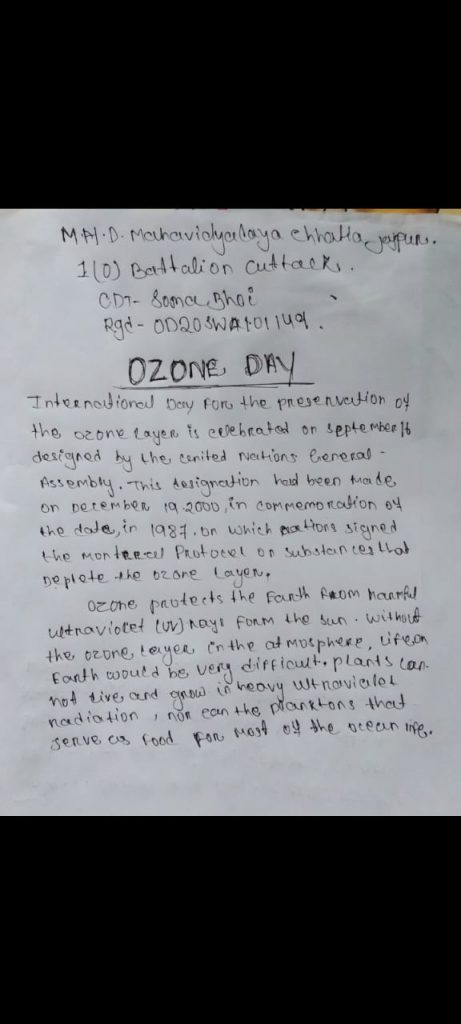 M.H.D. Mahavidyalaya chhatia, jajpur.
1(O) Battalion cuttack.
CDT- Soma Bhoi
Rgd- OD20SWA101149.
OZONE DAY
International Day For the preservation of
the ozone layer is celebrated on september 16
designed by the united Nations General -
Assembly. This designation had been made
on December 19.2000, in commemoration of
the date, in 1987, on which nations signed
the montreal Protocol on substances that
Deplete the ozone layer.
Ozone protects the Earth from harmful
ultraviolet (UV) rays form the sun. without
the ozone layer in the atmosphere, life on
Earth would be very difficult. plants can-
not live and grow in heavy ultraviolet
radiation, nor can the planktons that
serve as food for most of the ocean life.